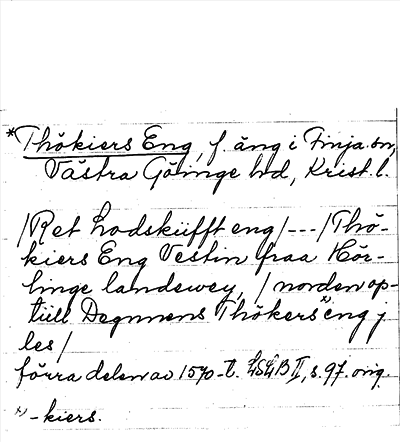 *Thökiers Eng, f. äng i Finja sn,
Västra Göinge hd, Krist. l.
/Ret hodskiifft eng/---/Thö-
kiers Eng Vestin fraa Hör-
linge landewey, /norden op-
tiill Degnnens Thökers x) eng j
les/
förra delen av 1570-t. LSLB II, s. 97. orig.
x) -kiers.